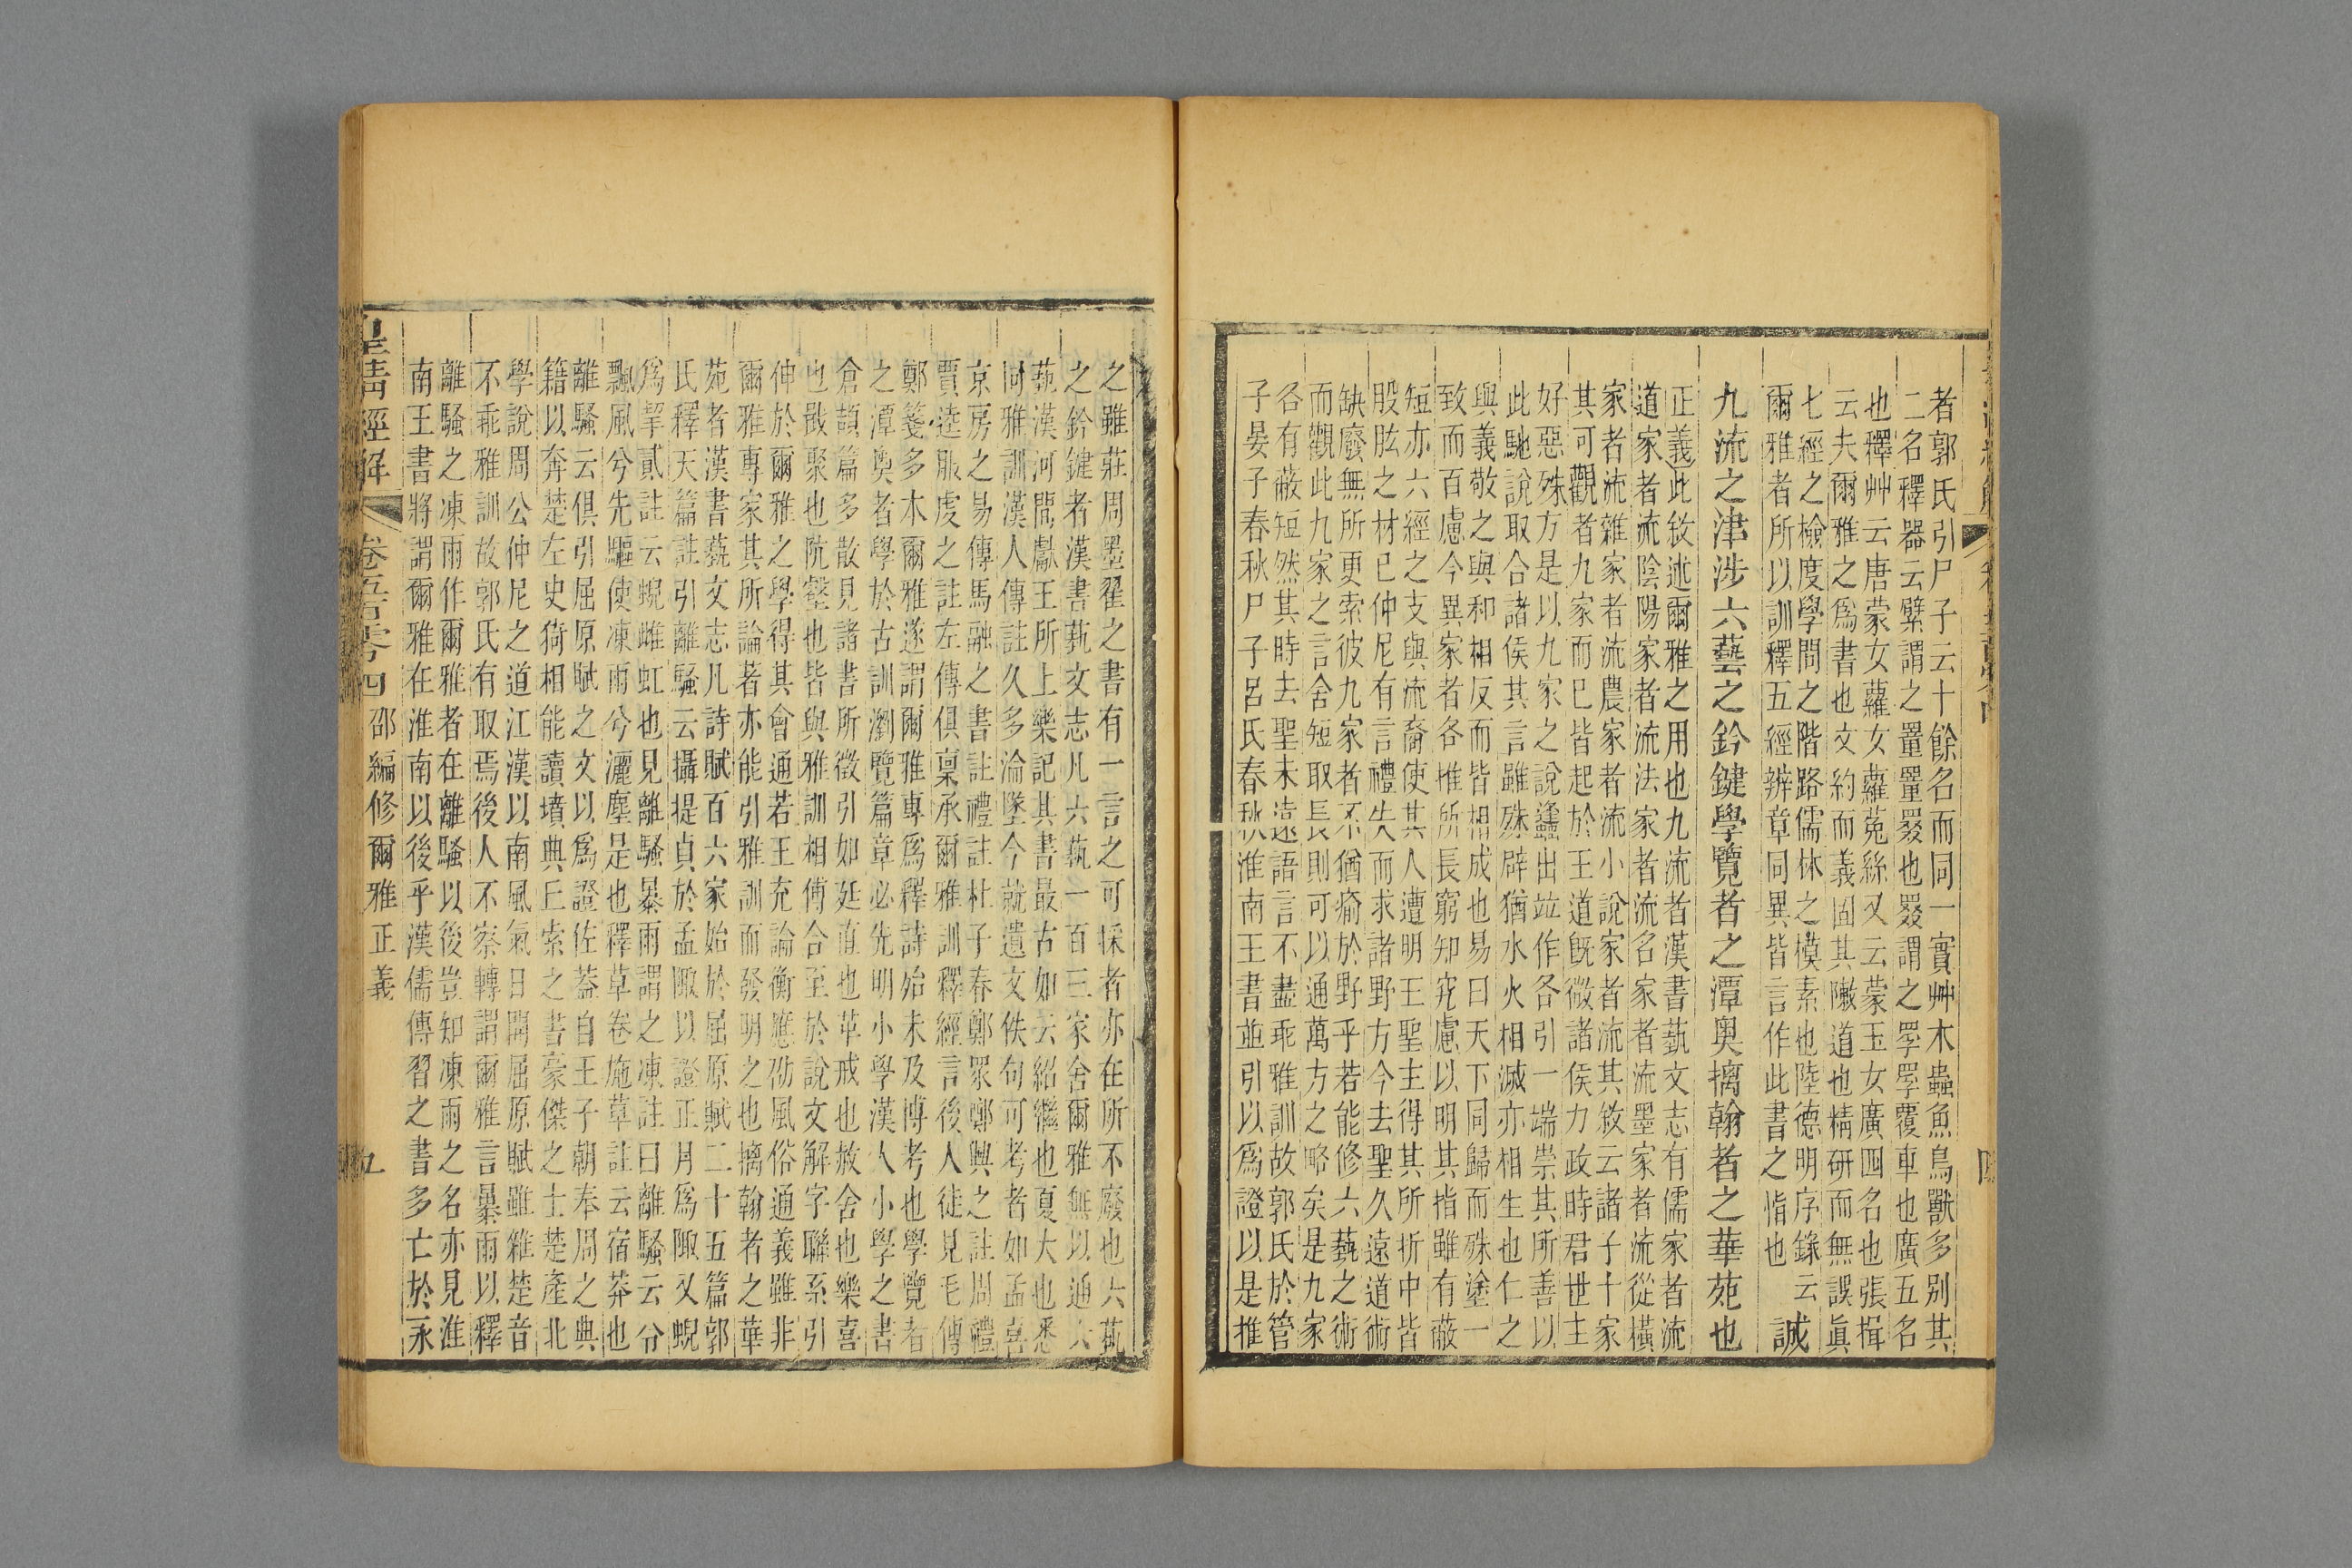 者郭氏引尸子云十餘名而同一實艸木蟲魚鳥獸多别其
二名釋器云繴謂之罿罿罬也罬謂之罦罦覆車也廣五名
也釋艸云唐蒙女蘿女蘿菟絲又云蒙玉女廣四名也張揖
云夫爾雅之爲書也文約而義固其陳道也精研而無誤眞
七經之檢度學問之階路儒林之模素也陸德明序錄云
爾雅者所以訓釋五經辨章同異皆言作此書之恉也
誠
九流之津涉六藝之鈐鍵學覽者之潭奧摛翰者之華苑也
正義此敘述爾雅之用也九流者漢書藝文志有儒家者流
道家者流陰陽家者流法家者流名家者流墨家者流從橫
家者流雜家者流農家者流小說家者流其敘云諸子十家
其可觀者九家而已皆起於王道旣微諸侯力政時君世主
好惡殊方是以九家之說蠭出竝作各引一端崇其所善以
此馳說取合諸侯其言雖殊辟猶水火相滅亦相生也仁之
與義敬之與和相反而皆相成也易曰天下同歸而殊塗一
致而百慮今異家者各推所長窮知究慮以明其指雖有蔽
短亦六經之支與流裔使其人遭明王聖主得其所折中皆
股肱之材已仲尼有言禮失而求諸野方今去聖久遠道術
缺廢無所更索彼九家者不猶瘉於野乎若能修六藝之術
而觀此九家之言舍短取長則可以通萬方之略矣是九家
各有蔽短然其時去聖未遠語言不盡乖雅訓故郭氏於管
子晏子春秋尸子呂氏春秋淮南王書並引以爲證以是推
之雖莊周墨翟之書有一言之可採者亦在所不廢也六藝
之鈐鍵者漢書藝文志凡六藝一百三家舍爾雅無以通六
藝漢河閒獻王所上樂記其書最古如云紹繼也夏大也悉
同雅訓漢人傳註久多淪墜今就遺文佚句可考者如孟喜
京房之易傳馬融之書註禮註杜子春鄭眾鄭興之註周禮
賈逵服虔之註左傳俱稟承爾雅訓釋經言後人徒見毛傳
鄭箋多本爾雅遂謂爾雅專爲釋詩始未及博考也學覽者
之潭奧者學於古訓瀏覽篇章必先明小學漢人小學之書
倉頡篇多散見諸書所徵引如廷直也革戒也赦舍也樂喜
也戢聚也阬壑也皆與雅訓相傅合至於說文解字聯系引
伸於爾雅之學得其會通若王充論衡應劭風俗通義雖非
爾雅專家其所論著亦能引雅訓而發明之也摛翰者之華
苑者漢書藝文志凡詩賦百六家始於屈原賦二十五篇郭
氏釋天篇註引離騷云攝提貞於孟陬以證正月爲陬又蜺
爲挈貳註云蜺雌虹也見離騷暴雨謂之凍註曰離騷云兮
飄風兮先驅使凍雨兮灑塵是也釋草卷施草註云宿莽也
離騷云俱引屈原賦之文以爲證佐蓋自王子朝奉周之典
籍以奔楚左史猗相能讀墳典丘索之書豪傑之士楚產北
學說周公仲尼之道江漢以南風氣日開屈原賦雖雜楚音
不乖雅訓故郭氏有取焉後人不察轉謂爾雅言暴雨以釋
離騷之凍雨作爾雅者在離騷以後豈知凍雨之名亦見淮
南王書將謂爾雅在淮南以後乎漢儒傳習之書多亡於永
皇淸經解 卷五百零四 邵編修爾雅正義 九